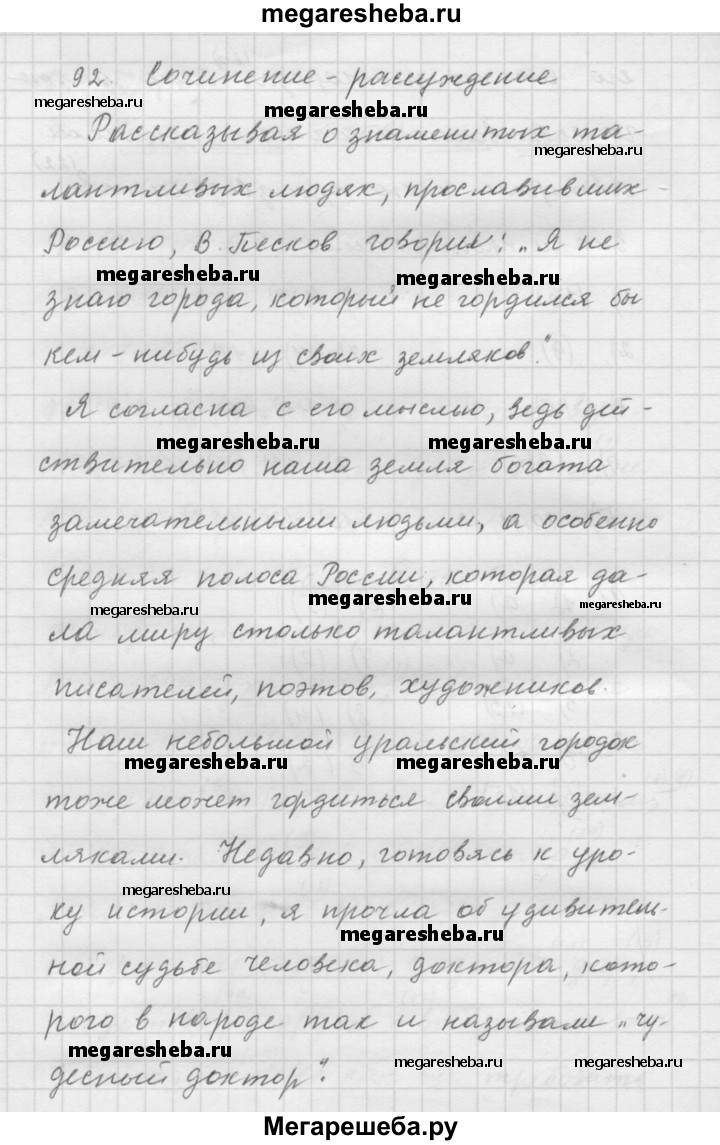 megaresheba.ru
92. Сочинение - рассуждение
megaresheba.ru megaresheba.ru
Рассказывая о знаменитых та-
megaresheba.ru
лантливых людях, прославивших
Россию, В. Песков говорил: „Я не
megaresheba.ru megaresheba.ru
знаю города, который не гордился бы
кем-нибудь из своих земляков."
Я согласна с его мыслью, ведь дей-
megaresheba.ru megaresheba.ru
ствительно наша земля богата
замечательными людьми, а особенно
средняя полоса России, которая да-
megaresheba.ru megaresheba.ru megaresheba.ru
ла миру столько талантливых
писателей, поэтов, художников.
Наш небольшой уральский городок
megaresheba.ru megaresheba.ru
тоже может гордиться своими зем-
ляками. Недавно, готовясь к уро-
megaresheba.ru
ку истории, я прочла об удивитель-
megaresheba.ru
ной судьбе человека, доктора, кото-
рого в народе так и называли „чу-
megaresheba.ru megaresheba.ru megaresheba.ru
десный доктор".
Мегарешеба.ру